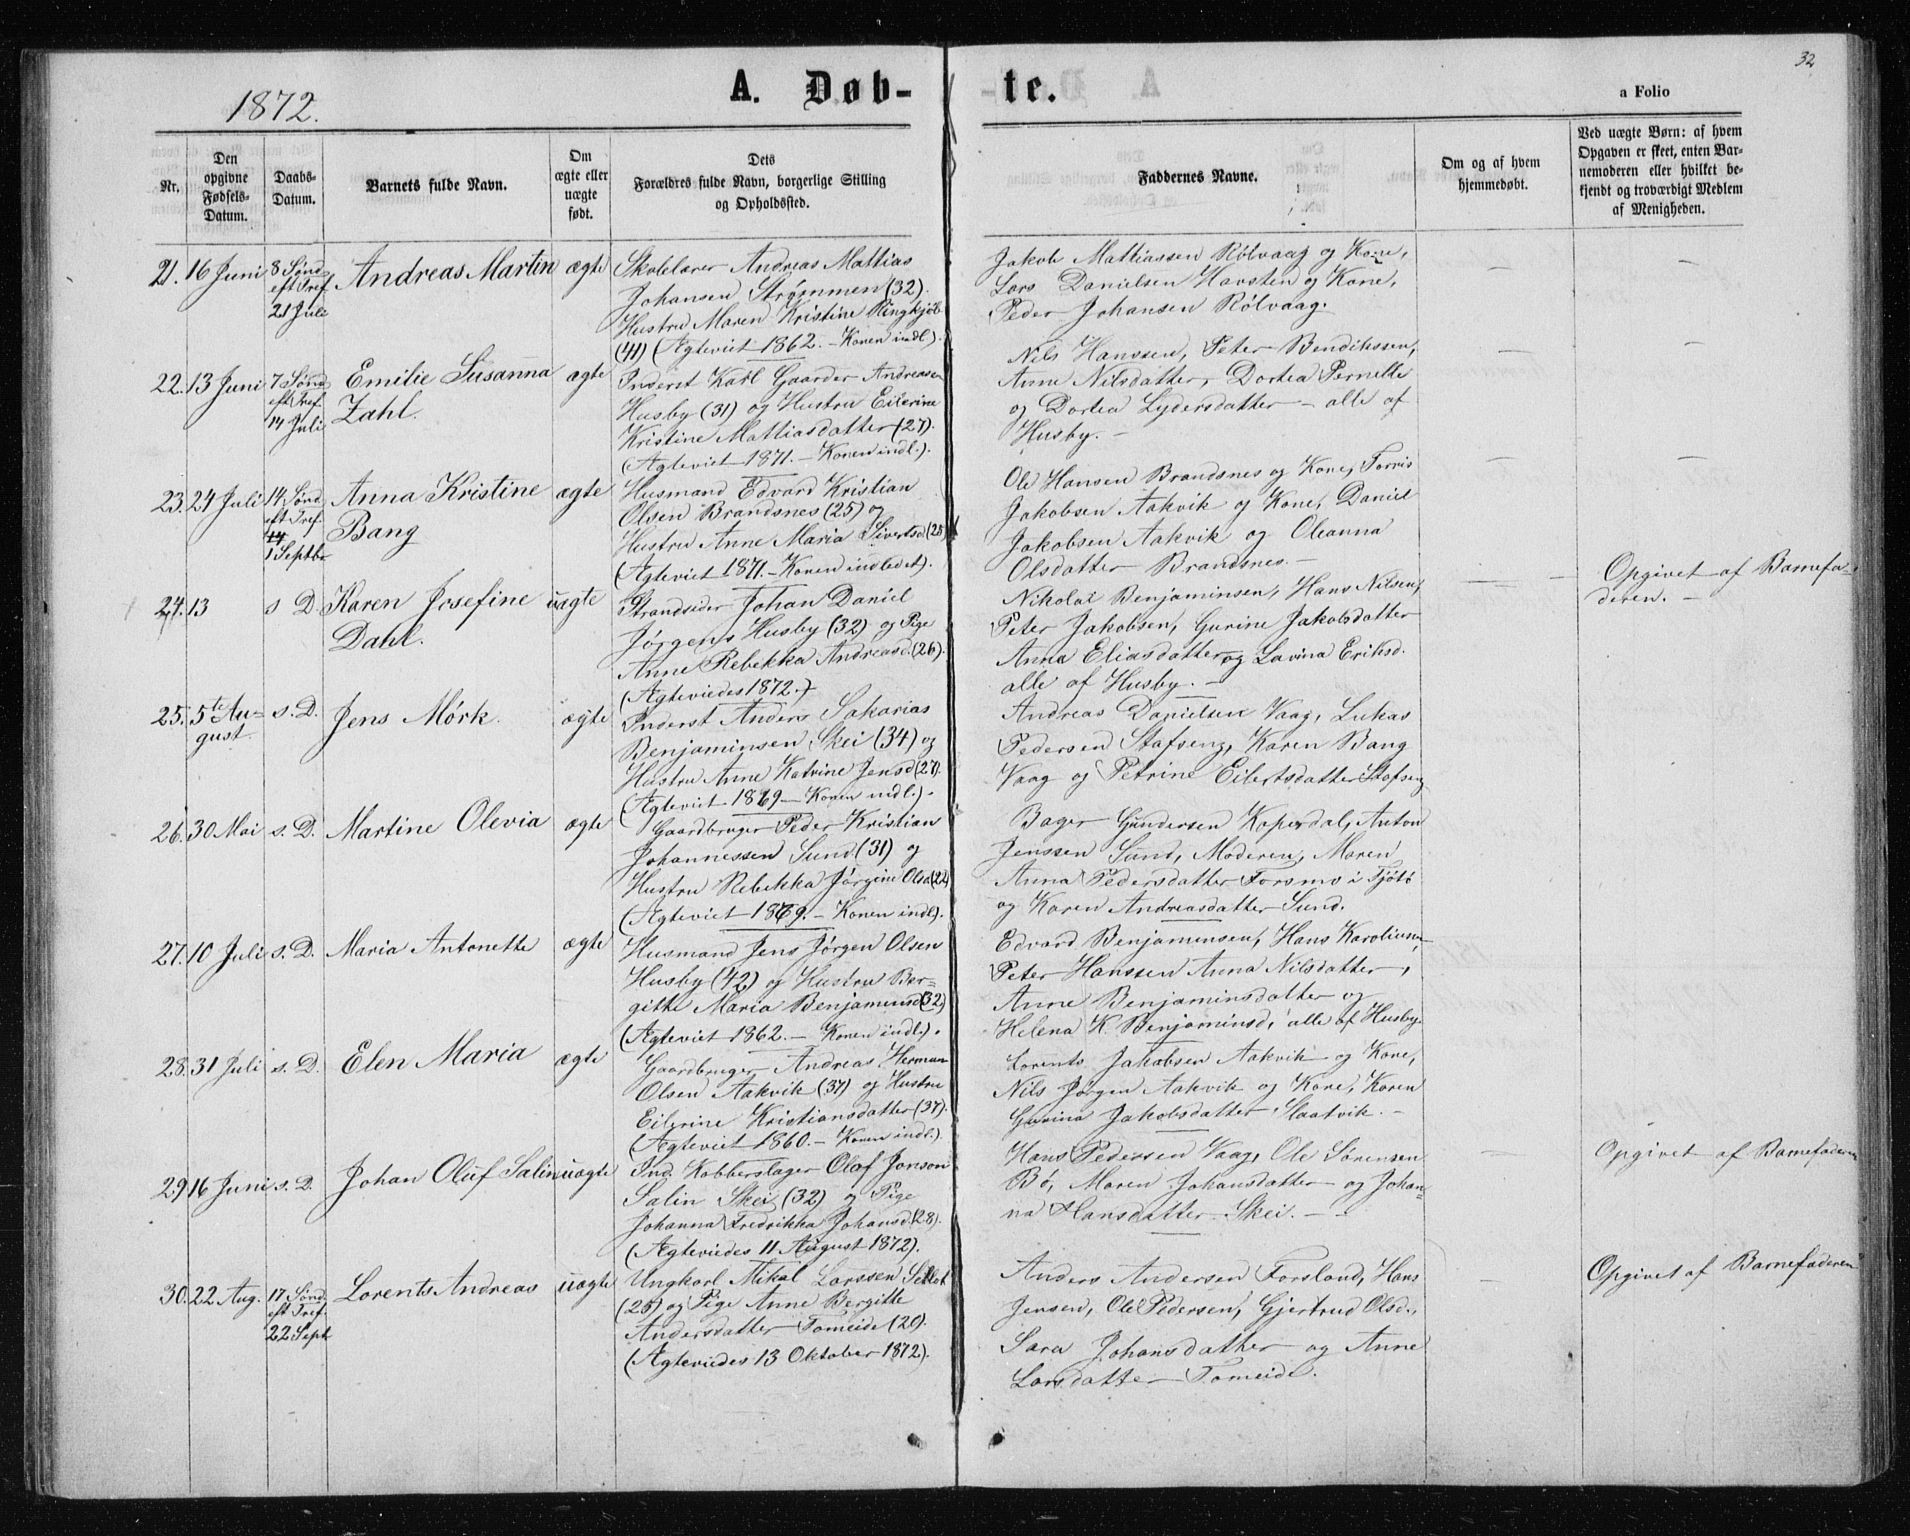 32
1872.
A. Døb-
te.
a Folio
Nr.
Den
opgivne
Fødsels-
Datum.
Daabs-
Datum.
Barnets fulde Navn.
Om
ægte eller
uægte
født.
Dets
Forældres fulde Navn, borgerlige Stilling
og Opholdssted.
Faddernes Navne.
Om og af hvem
hjemmedøbt.
Ved uægte Børn: af hvem
Opgaven er skeet, enten Bar-
nemoderen eller hvilket be-
kjendt og troværdigt Medlem
af Menigheden.
21. 16 Juni
8 Sønd
eft Tref
21 Juli
Andreas Martin
ægte
Skolelærer Andreas Mattias
Johansen Strømmen (32).
Hustru Maren Kristine Ringkjøb
(41) (Ægteviet 1862. - Konen indl).
Jakob Mattiassen Rølvaag og Kone,
Lars Danielsen Havsten og Kone,
Peder Johansen Rølvaag.
22. 13 Juni
7 Sønd
eft Tref
14 Juli
Emilie Susanna
Zahl.
ægte
Inderst Karl Gaarder Andreasen
Husby (31) og Hustru Eilerine
Kristine Mattiasdatter (27).
(Ægteviet 1871. - Konen indl.).
Nils Hanssen, Peter Bendikssen,
Anne Nilsdatter, Dortea Pernelle
og Dortea Lydersdatter - alle af
Husby. -
23. 24 Juli
14 Sønd
eft Tref
1 Septbr
Anna Kristine
Bang
ægte
Husmand Edvard Kristian
Olsen Brandsnes (25) og
Hustru Anne Maria Sivertsd (25)
(Ægteviet 1871. - Konen indledet).
Ole Hansen Brandsnes og Kone, Torris
Jakobsen Aakvik og Kone, Daniel
Jakobsen Aakvik og Oleanna
Olsdatter Brandsnes. -
24. 13
s D.
Karen Josefine
Dahl.
uægte
Strandsider Johan Daniel
Jørgens Husby (32) og Pige
Anne Rebekka Andreasd. (26).
(Ægteviedes 1872.)
Nikolai Benjaminsen, Hans Nilsen,
Peter Jakobsen, Gurine Jakobsdatter
Anna Eliasdatter og Lavina Eriksd.
alle af Husby. -
Opgivet af Barnefa-
deren. -
25. 5te Au-
gust.
s. D.
Jens Mörk.
ægte
Inderst Anders Sakarias
Benjaminsen Skei (34) og
Hustru Anne Katrine Jensd (27).
(Ægteviet 1869 - Konen indl.).
Andreas Danielsen Vaag, Lukas
Pedersen Stafseng, Karen Bang
Vaag og Petrine Eilertsdatter Stafseng
26. 30 Mai
s. D.
Martine Olevia
ægte
Gaardbruger Peder Kristian
Johannessen Sund (31) og
Hustru Rebekka Jørgine Olsd (22)
(Ægteviet 1869. - Konen indl).
Bager Gundersen Koperdal, Anton
Jenssen Sund, Moderen, Maren
Anna Pedersdatter Forsmo i Tjøtø
og Karen Andreasdatter Sund.
27. 10 Juli
s. D.
Maria Antonette
ægte
Husmand Jens Jørgen Olsen
Husby (42) og Hustru Ber-
gitte Maria Benjaminsd (32)
(Ægteviet 1862. - Konen indl.).
Edvard Benjaminsen, Hans Karolius,
Peter Hanssen Anna Nilsdatter,
Anne Benjaminsdatter og
Helena K. Benjaminsd, alle af Husby.
28. 31 Juli
s. D.
Elen Maria
ægte
Gaardbruger Andreas Herman
Olsen Aakvik (37) og Hustru
Eilerine Kristiansdatter (37).
(Ægteviet 1860. - Konen indl.)
Lorents Jakobsen Aakvik og Kone,
Nils Jørgen Aakvik og Kone, Karen
Gurina Jakobsdatter Slaatvik. -
29. 16 Juni
s. D.
Johan Oluf Salin
uægte
Ind. Kobberslager Olof Jonson
Salin Skei (32) og Pige
Johanna Fredrikka Johansd. (28).
(Ægteviedes 11 August 1872).
Hans Pedersen Vaag, Ole Sørensen
Bø, Maren Johansdatter og Johan-
na Hansdatter Skei. -
Opgivet af Barnefaderen
30. 22 Aug.
17 Sønd
eft Tref
22 Sept
Lorents Andreas
uægte
Ungkarl Mikal Larssen
(25) og Pige Anne Bergitte
Andersdatter Tomeide (20).
(Ægteviedes 13 Oktober 1872).
Anders Andersen Forsland, Hans
Jensen, Ole Pedersen, Gjertrud Olsd.,
Sara Johansdatter og Anne
Larsdatter Tomeide.
Opgivet af Barnefaderen